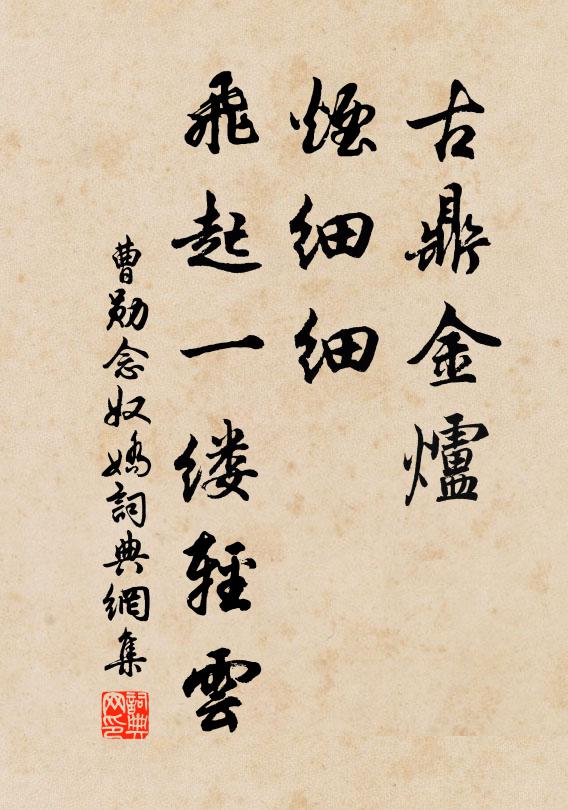 古鼎金爐
煙細細
飛起一缕輕雲
曹勛念奴嬌詞典網集
詞典网印